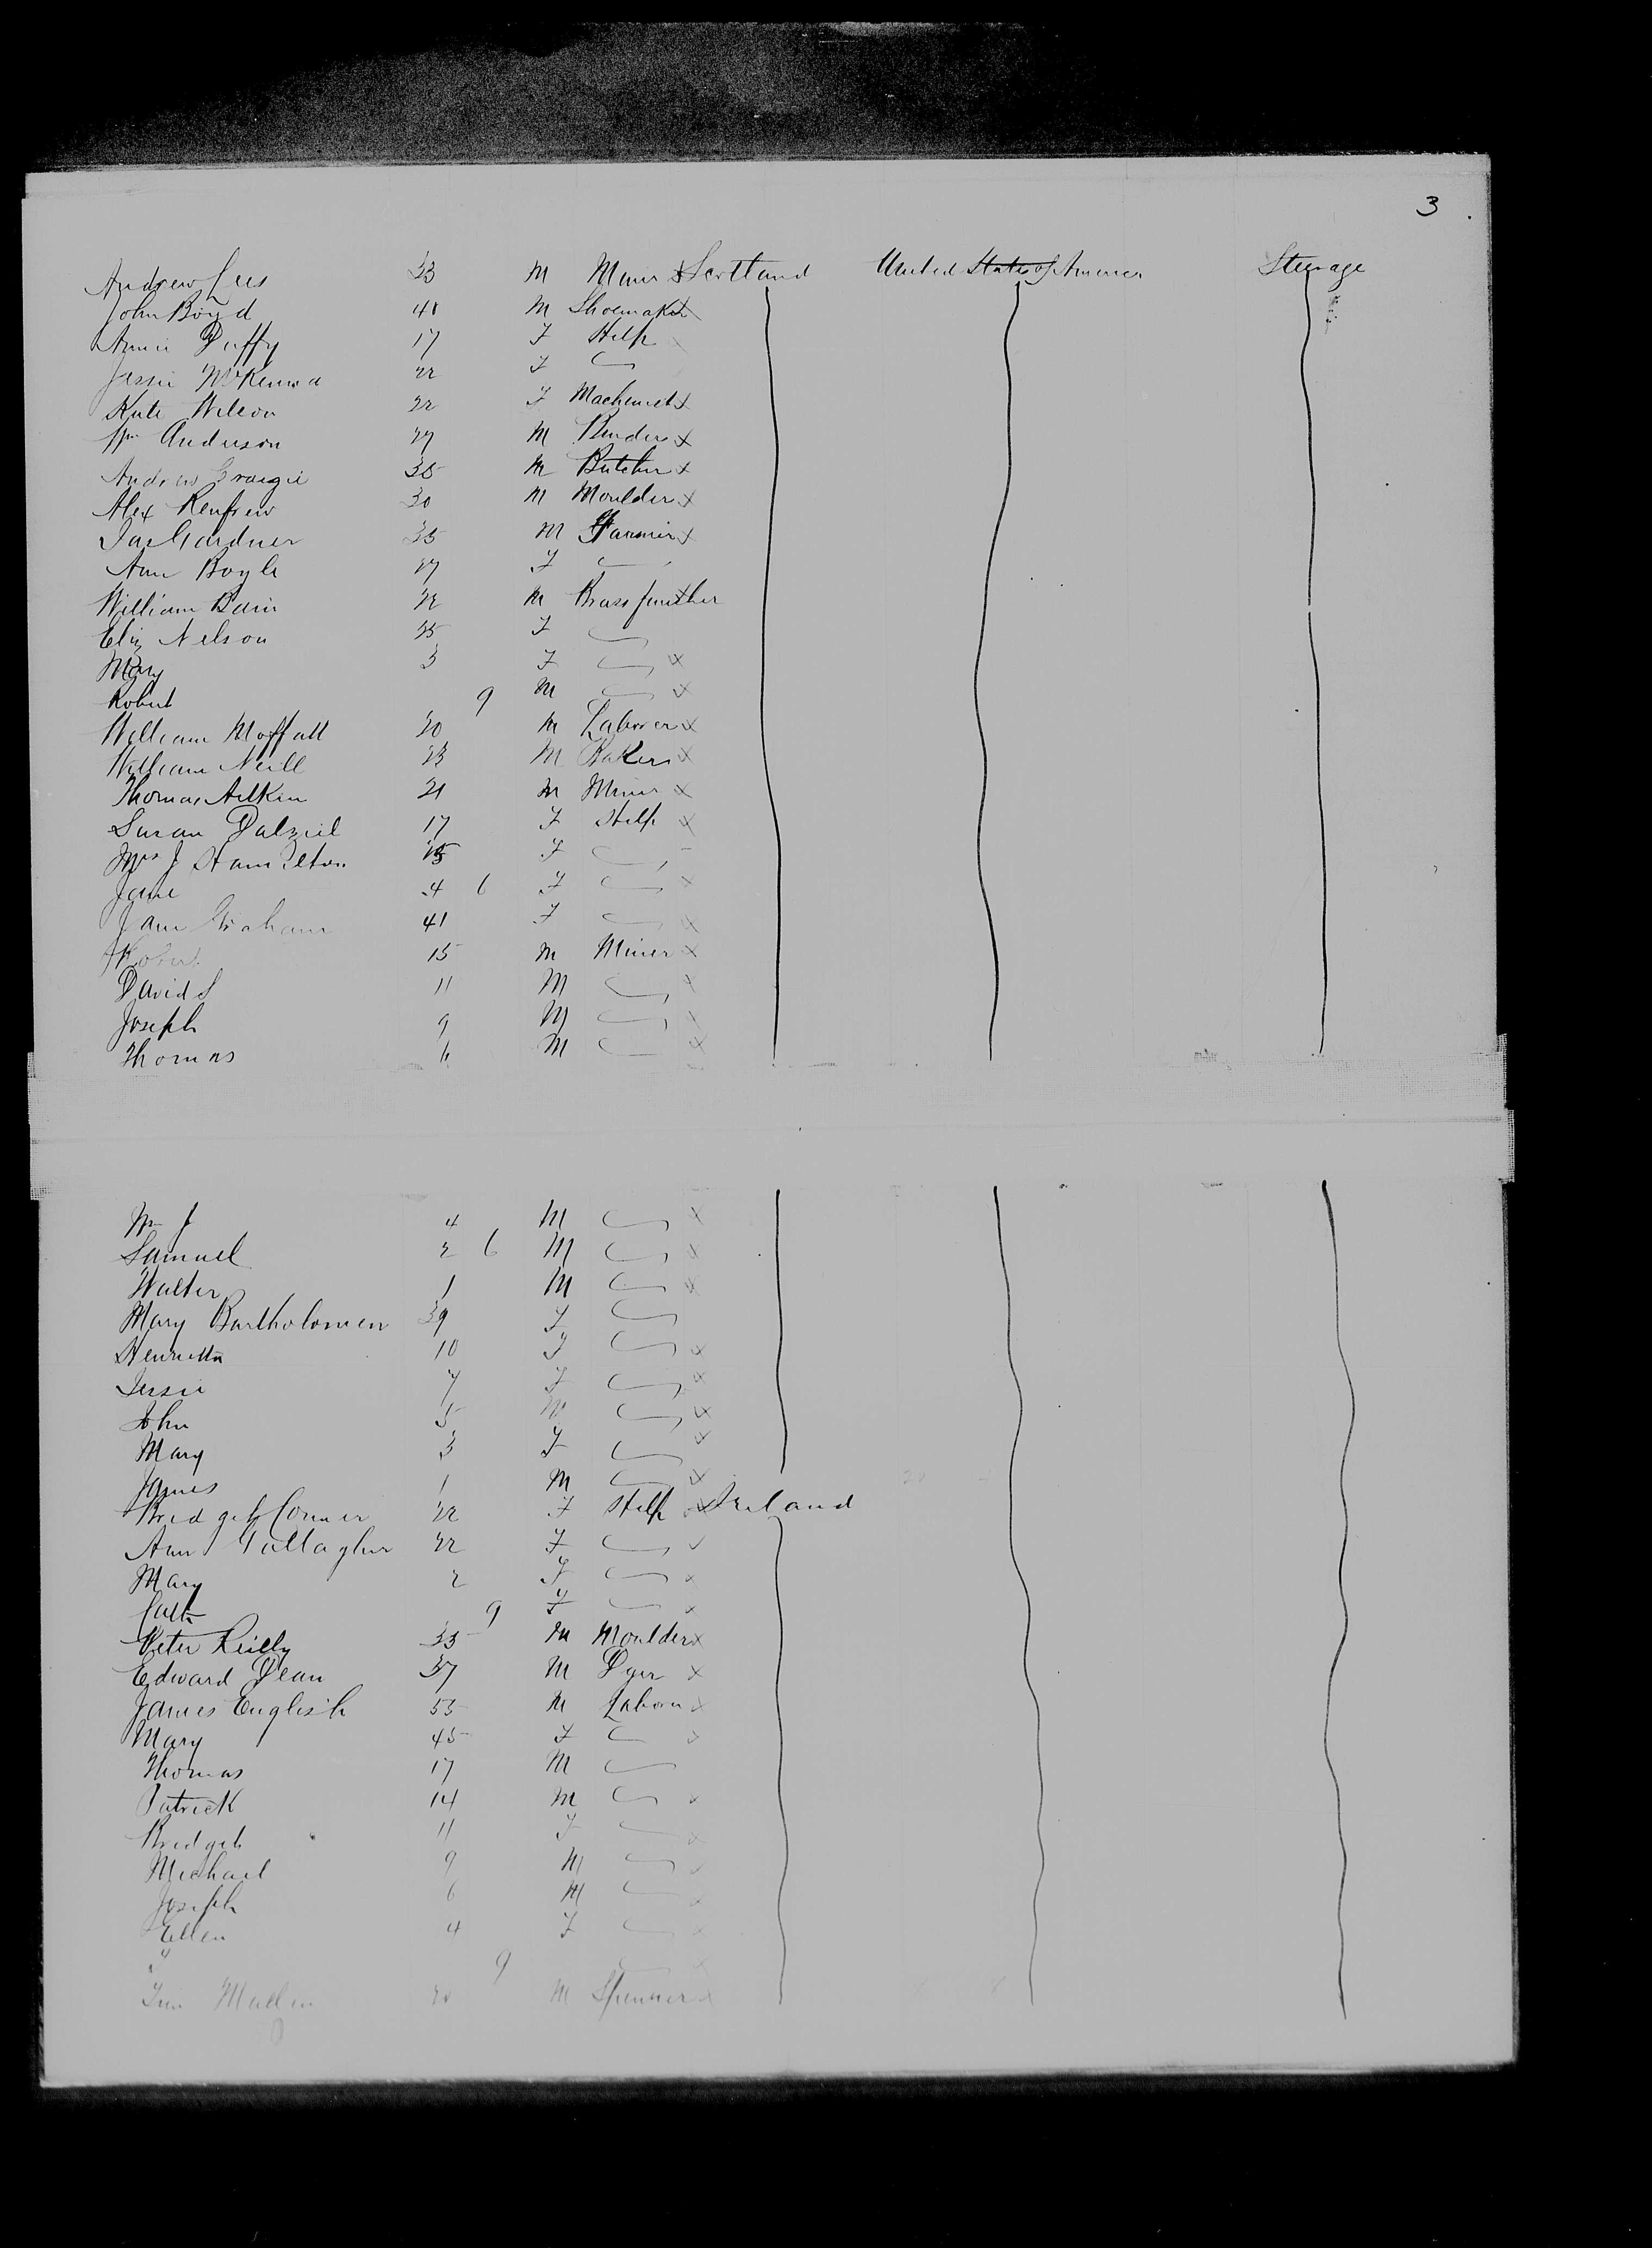 3
Andrew Lees 33 M Miner Scotland United States of America Steerage
John Boyd 41 M Shoemaker
Annie Duffy 17 F Help
Jessie McKenna 22 F
Kate Wilson 22 F Machinist
Wm Anderson 27 M
Andrew Craigie 35 M Butcher
Alex Renfrew 30 M Moulder
Jas Gardner 35 M Farmer
Ann Boyle 27 F
William Bain 22 M Brass finisher
Eliz Nelson 25 F
Mary 3 F
Robert 9 M
William Moffatt 20 M Laborer
William Neill 23 M Baker
Thomas Aitken 21 M Miner
Susan Dalziel 17 F Help
Mrs J Hamilton 25 F
Jane 4 6 F
Jane Graham 41 F
Robert 15 M Miner
David S 11 M
Joseph 9 M
Thomas 6 M
Wm J 4 M
Samuel 2 6 M
Walter 1 M
Mary Bartholomew 39 F
Henrietta 10 F
Jessie 7 F
John 5 M
Mary 3 F
James 1 M
Bridget Conner 22 F Help Ireland
Ann Gallagher 22 F
Mary 2 F
Cath 9 F
Peter Reilly 33 M Moulder
Edward Dean 37 M Dyer
James English 55 M Laborer
Mary 45 F
Thomas 17 M
Patrick 14 M
Bridget 11 F
Michael 9 M
Joseph 6 M
Ellen 4 F
9
20 M Spinner